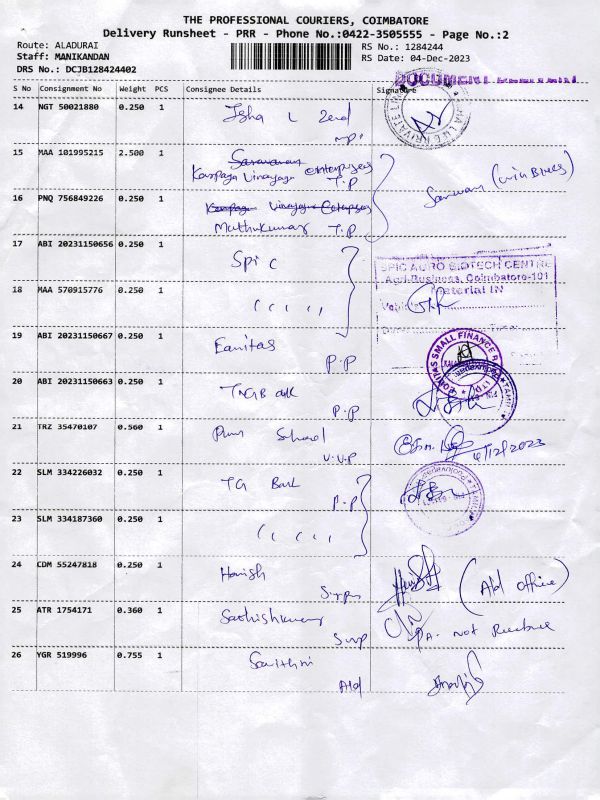 THE PROFESSIONAL COURIERS, COIMBATORE
Delivery Runsheet - PRR - Phone No.:0422-3505555 - Page No.:2
Route: ALADURAI
Staff: MANIKANDAN
DRS No.: DCJB128424402
RS No.: 1284244
RS Date: 04-Dec-2023
S No Consignment No Weight PCS Consignee Details Signature
14 NGT 50021880 0.250 1 Isha L
15 MAA 101995215 2.500 1 Saravanan
Karpaga Vinayaga enterprises
T.P
16 PNQ 756849226 0.250 1 Karpaga Vinayaga Enterprises
Muthukumar T.P
Saravanan
17 ABI 20231150656 0.250 1 Spic
SPIC AGRO BIOTECH CENTRE
Agri-Business, Coimbatore-101
Material IN
18 MAA 570915776 0.250 1 " " "
19 ABI 20231150667 0.250 1 Equitas
P.P
EQUITAS SMALL FINANCE
20 ABI 20231150663 0.250 1 TNGB
P.P
21 TRZ 35470107 0.560 1
V.V.P
6/12/2023
22 SLM 334226032 0.250 1 TG Bank
P.P
23 SLM 334187360 0.250 1 " " "
24 CDM 55247818 0.250 1 Harish
(Ald office)
25 ATR 1754171 0.360 1 Sathishkumar
Not
26 YGR 519996 0.755 1 Savithri
Ald